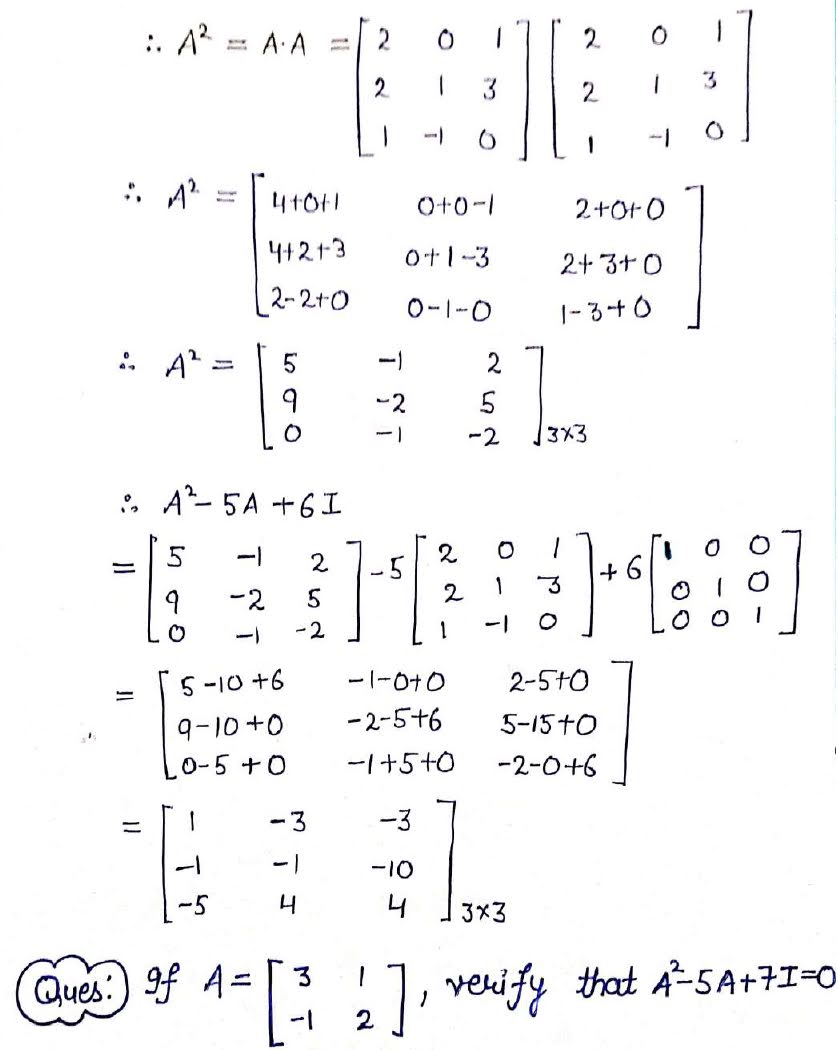 ∴ A² = A·A = [ 2 0 1 ] [ 2 0 1 ]
2 1 3 2 1 3
1 -1 0 1 -1 0
∴ A² = [ 4+0+1 0+0-1 2+0+0 ]
4+2+3 0+1-3 2+3+0
2-2+0 0-1-0 1-3+0
∴ A² = [ 5 -1 2 ]
9 -2 5
0 -1 -2 3×3
∴ A²-5A+6I
= [ 5 -1 2 ] -5 [ 2 0 1 ] +6 [ 1 0 0 ]
9 -2 5 2 1 3 0 1 0
0 -1 -2 1 -1 0 0 0 1
= [ 5-10+6 -1-0+0 2-5+0 ]
9-10+0 -2-5+6 5-15+0
0-5+0 -1+5+0 -2-0+6
= [ 1 -3 -3 ]
-1 -1 -10
-5 4 4 3×3
Ques: If A = [ 3 1 ], verify that A²-5A+7I=0
-1 2